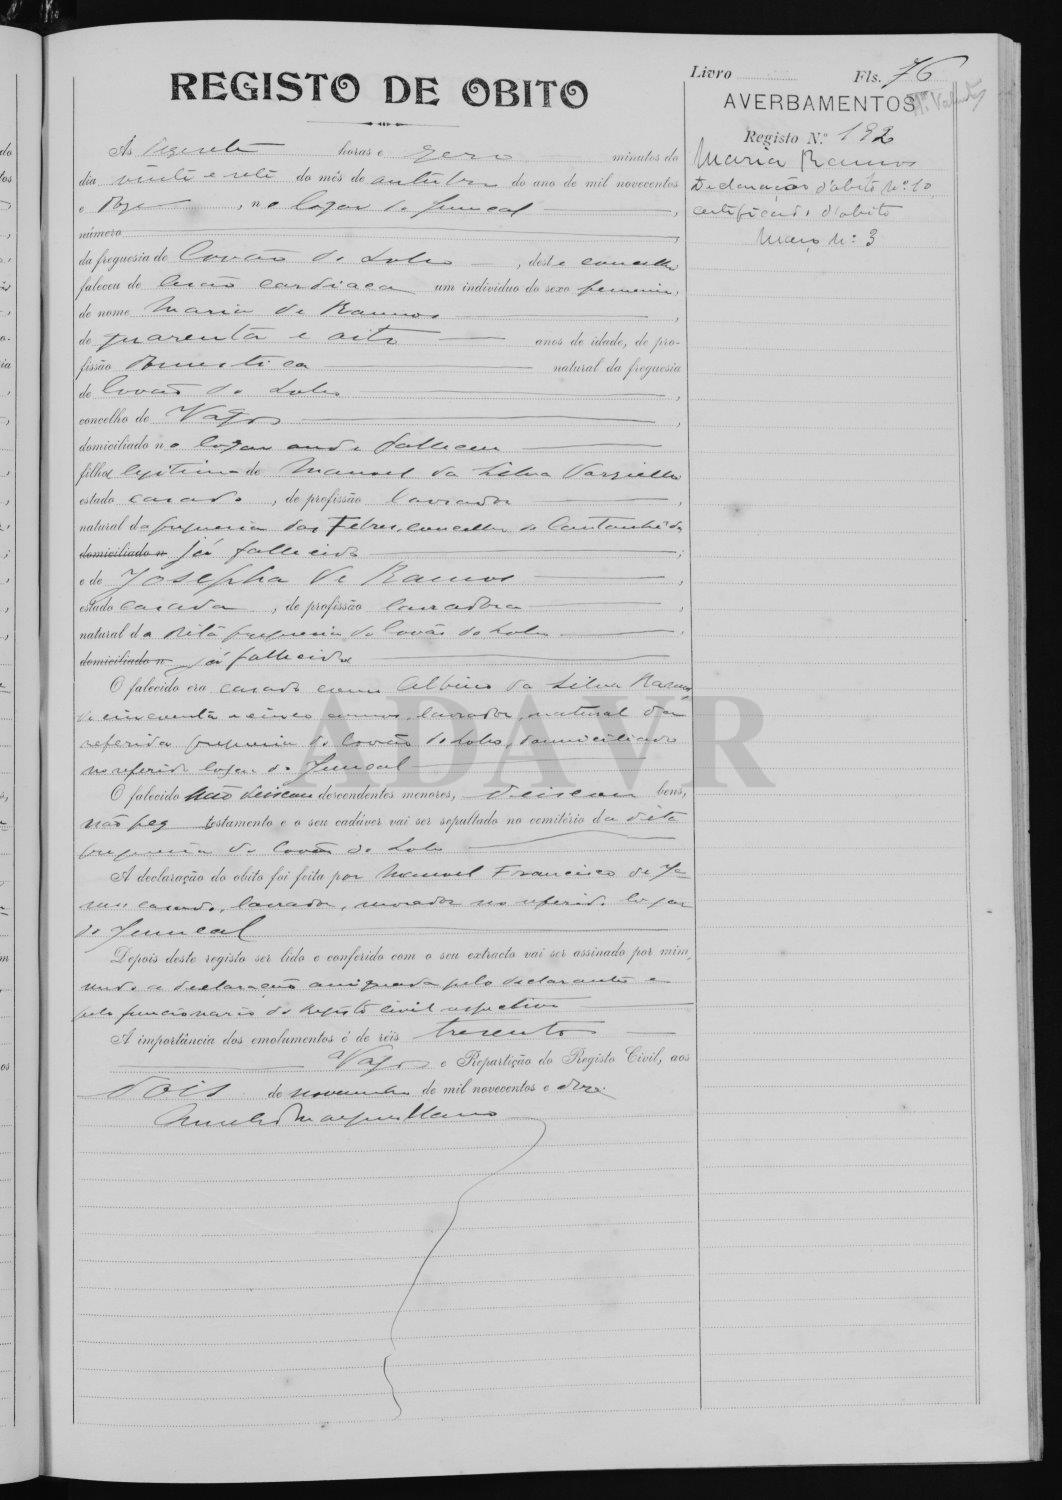 REGISTO DE OBITO
Livro Fls. 76
AVERBAMENTOS
Registo N.º 192
Maria Ramos
Declaração d'obito nº 10
certificado d'obito
Maço nº 3
Ás horas e zero minutos do
dia vinte e sete do mês de outubro do ano de mil novecentos
e doze, no logar do Juncal,
número
da freguesia de Covão do Lobo, deste concelho
faleceu de lesão cardiaca um individuo do sexo femenino,
de nome Maria de Ramos,
de quarenta e oito anos de idade, de pro-
fissão domestica natural da freguesia
de Covão do Lobo,
concelho de Vagos,
domiciliado no logar onde falleceu
filha legitima de Manoel da Silva
estado casado, de profissão lavrador,
natural da freguesia das Febres, concelho de Cantanhede
domiciliado n já fallecido;
e de Josepha de Ramos,
estado casada, de profissão lavradora,
natural da dita freguesia do Covão do Lobo,
domiciliado n já fallecida
O falecido era casado com Albino da Silva Ramos
de cincoenta e cinco annos, lavrador, natural da
referida freguesia do Covão do Lobo, domiciliado
no referido logar do Juncal
O falecido não deixou descendentes menores, deixou bens,
não fez testamento e o seu cadáver vai ser sepultado no cemitério da dita
freguesia do Covão do Lobo
A declaração do obito foi feita por Manuel Francisco de
casado, lavrador, morador no referido logar
do Juncal
Depois deste registo ser lido e conferido com o seu extracto vai ser assinado por mim,
a declaração assignada pelo declarante e
pelo funcionario do registo civil respectivo
A importância dos emolumentos é de réis trezentos
Vagos e Repartição do Registo Civil, aos
dois de novembro de mil novecentos e doze.
ADAVR